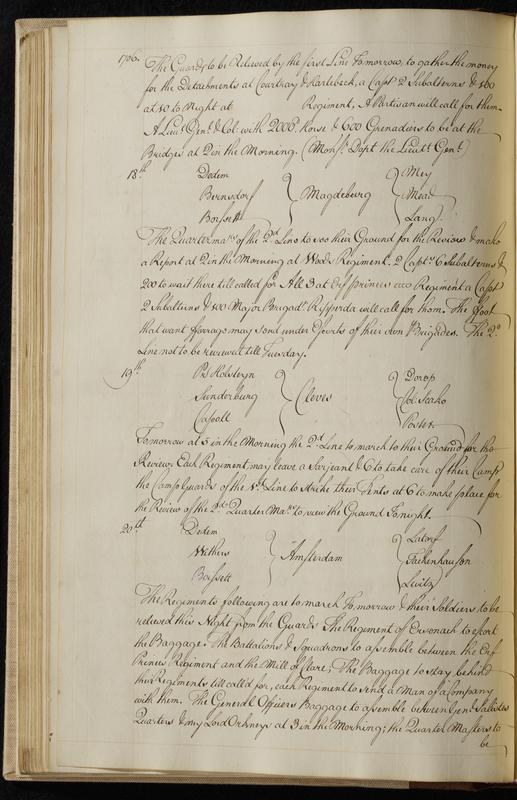 1706. The Guards to be Releived by the first Line Tomorrow, to gather the money
for the Detachments at Courtray & Harlebeck, a Capt. 2 Subalterns & 100
at 10 to Night at Regiment, A Partisan will call for them.
A Lieut Genl. & Col. with 2000. Horse & 600 Grenadiers to be at the
Bridges at 2 in the Morning. (Monsr. Dopt the Lieut. Genl.)
18th Dedem Mey
Bernsdorf Magdeburg Mead
Boisset Lang.
The Quartermars. of the 2d. Line to see their Ground for the Review & make
a Report at 2 in the Morning at Regiment. 2 Capts. 6 Subalterns &
200 to wait there till called for All 3 at Erfprinces Regiment a Capt.
2 Subalterns & 100 Major Brigadr. Ripperda will call for them. The foot
that want fforrage may send under Escorts of their own Brigades. The 2d.
Line not to be reviewed till Tuesday.
19th Ps Holsteyn Dorp
Sunderburg Cleves Col:
Cassall
Tomorrow at 5 in the Morning the 2d. Line to march to their Ground for the
Review, Each Regiment may leave a Serjeant & 6 to take care of their Camp
the Camp Guards of the 1st. Line to strike their Tents at 6 to make place for
the Review of the 2d. Quarter Mars. to view the Ground Tonight.
20th Dedem Latorf
Withers Amsterdam Fackenhauson
Boissett
The Regiments following are to march Tomorrow & their Soldiers to be
releived this Night from the Guards The Regiment of to escort
the Baggage. The Battalions & Squadrons to assemble between the Erf
Princes Regiment and the Mill of The Baggage to stay behind
their Regiments till call'd for, each Regiment to send a Man of a Company
with them. The General Officers Baggage to assemble between Genl.
Quarters & my Lord Orkneys at 3 in the Morning; the Quarter Masters to
be